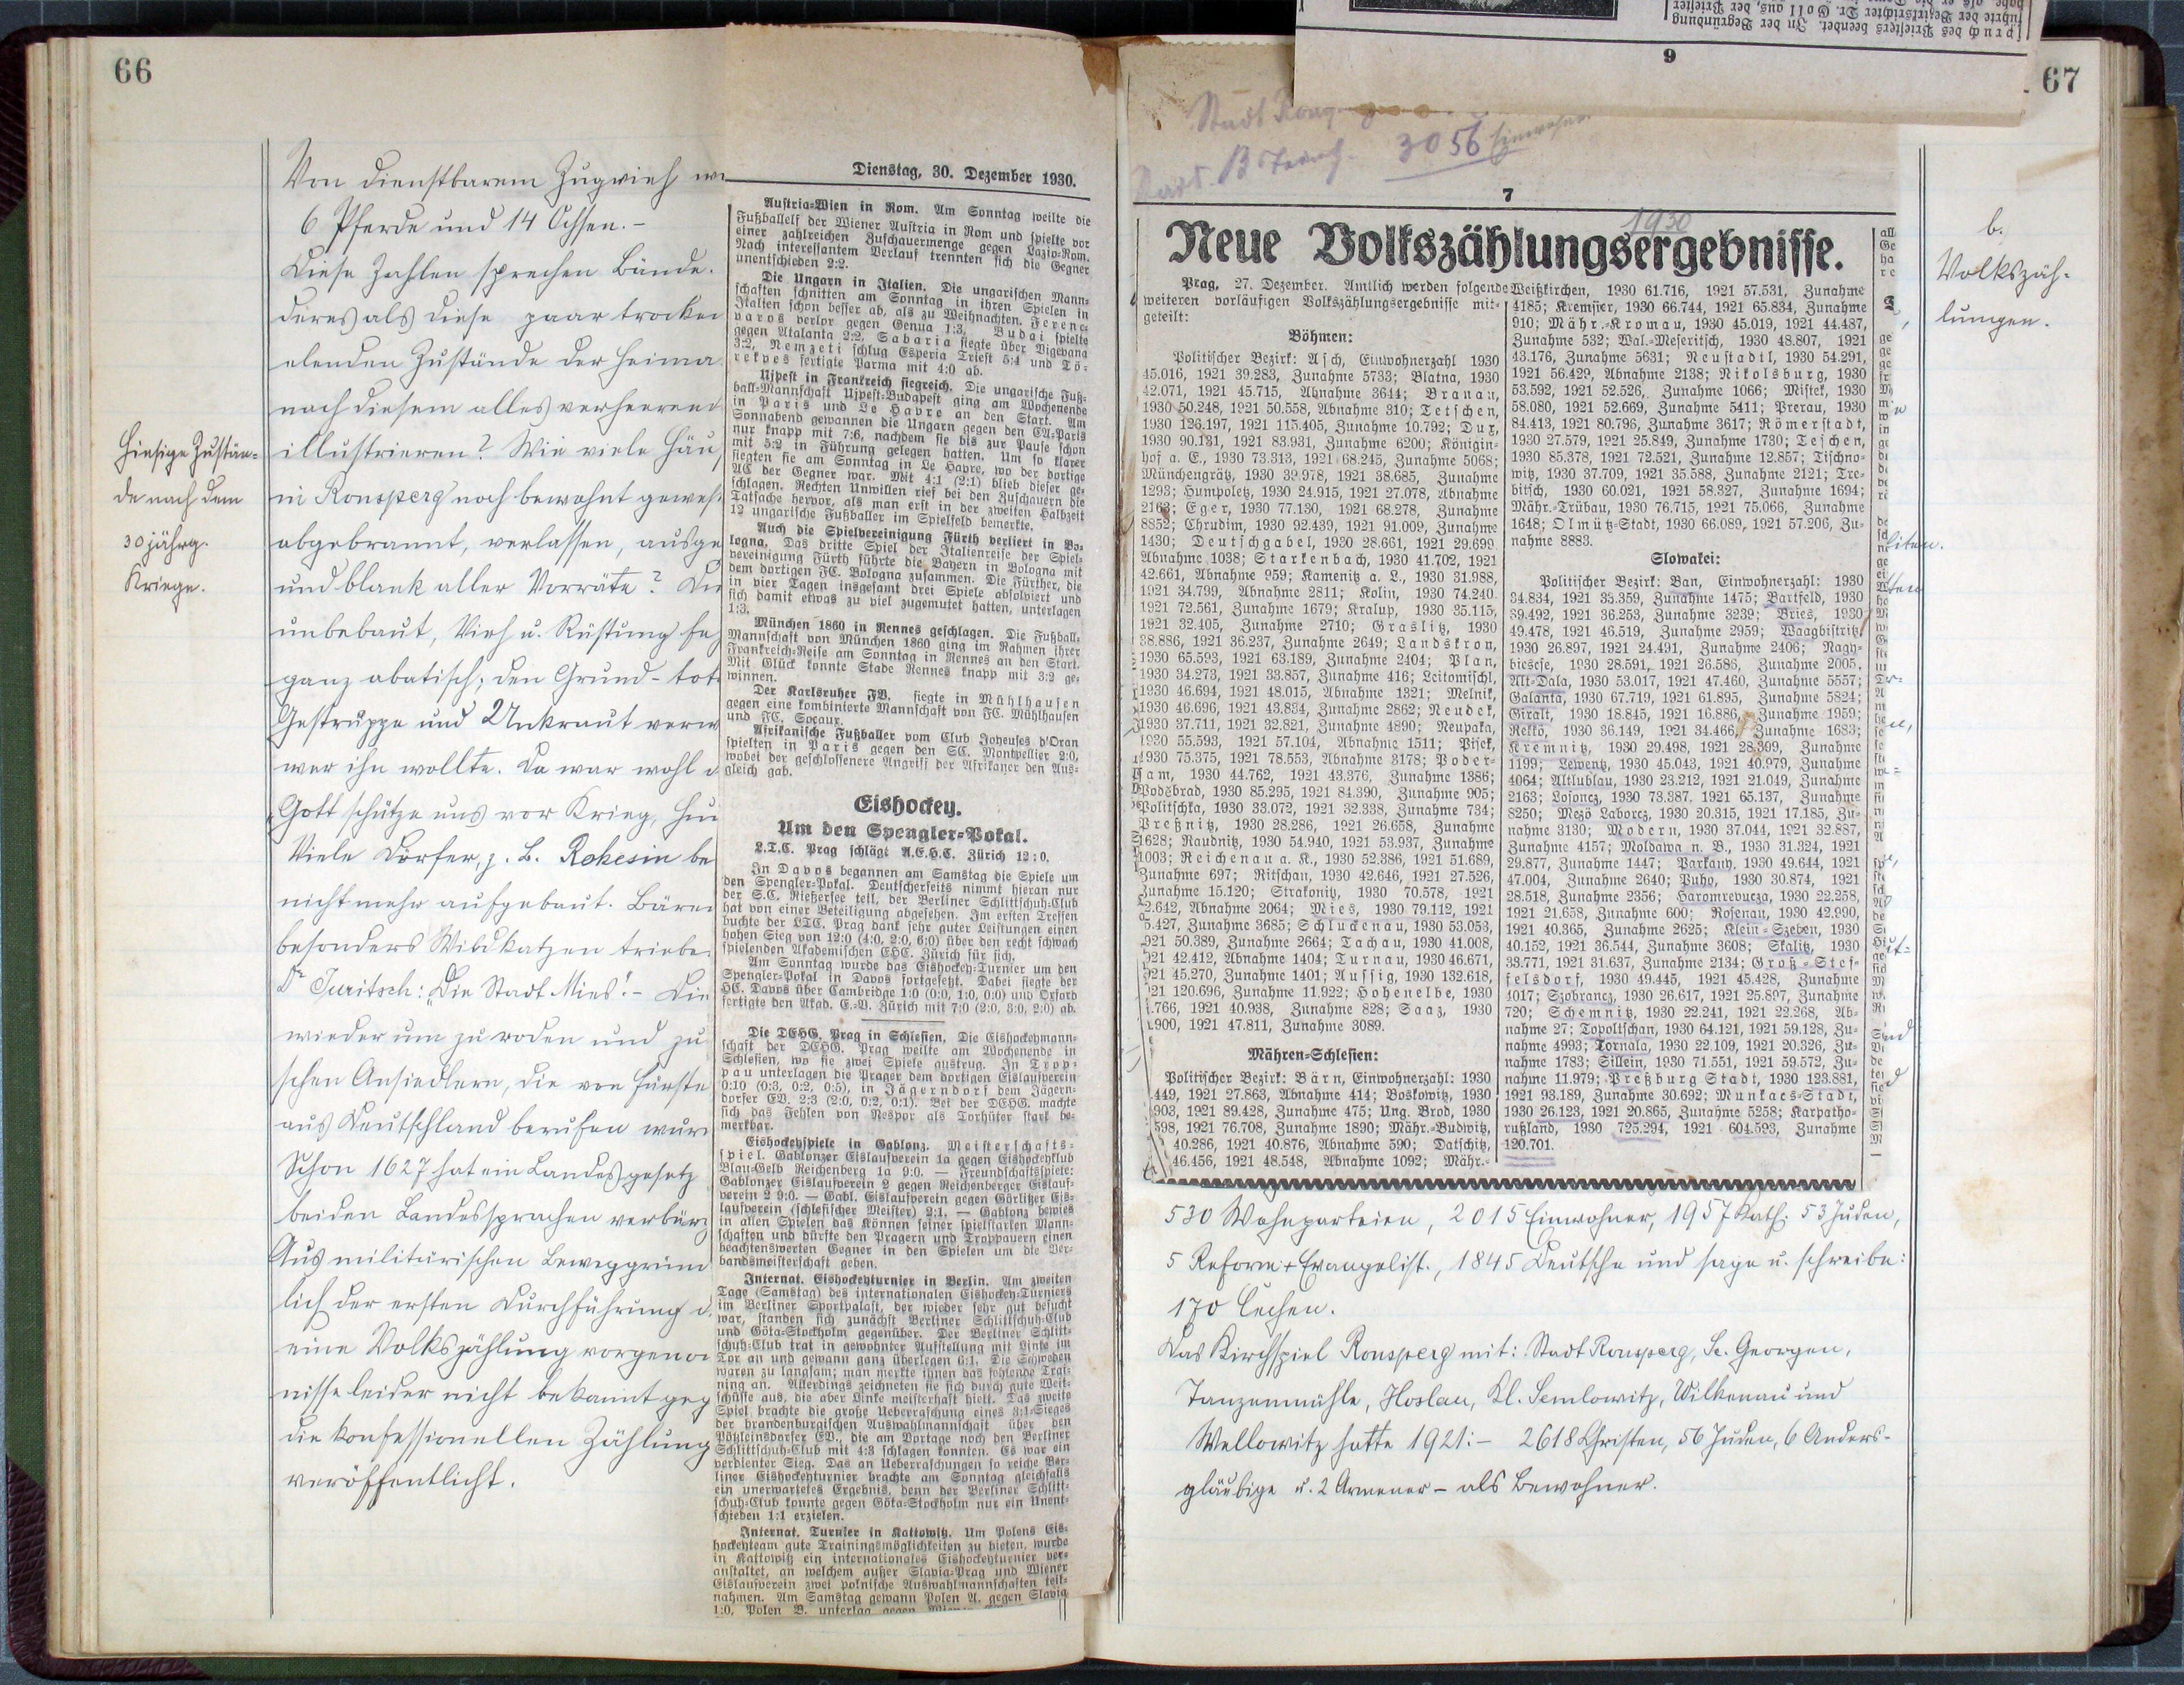 66
Von dienstbarem Zugvieh
6 Pferde und 14 Ochsen.-
Diese Zahlen sprechen Bände.
deres als diese paar trocken
elenden Zustände der Heima
nach diesem alles verheerend
illustrieren? Wie viele Häu
in Ronsperg noch bewohnt gewes
abgebrannt, verlassen, ausge
und blank aller Vorräte?
unbebaut, Vieh u. Rüstung
ganz abatisch; den Grund - tot
Gestrüppe und Unkraut verw
wer ihn wollte. Da war wohl d
"Gott schütze uns vor Krieg, Hun
Viele Dörfer, z. B. Rohesin
nicht mehr aufgebaut. Bären
besonders Wildkatzen triebe
Dr Juritsch: „Die Stadt Mies".- Die
wiederum zu roden und zu
schen Ansiedlern, die von Fürste
aus Deutschland berufen wur
Schon 1627 hat ein Landesgesetz
beiden Landessprachen verbürg
Aus militärischen Beweggrün
lich der ersten Durchführung d.
eine Volkszählung vorgenom
nisse leider nicht bekannt geg
die konfessionellen Zählung
veröffentlicht.
Hiesige Zustän-
de nach dem
30 jährg.
Kriege.
Dienstag, 30. Dezember 1930.
Austria-Wien in Rom. Am Sonntag weilte die
Fußballelf der Wiener Austria in Rom und spielte vor
einer zahlreichen Zuschauermenge gegen Lazio-Rom.
Nach interessantem Verlauf trennten sich die Gegner
unentschieden 2:2.
Die Ungarn in Italien. Die ungarischen Mann-
schaften schnitten am Sonntag in ihren Spielen in
Italien schon besser ab, als zu Weihnachten. Ferenc-
varos verlor gegen Genua 1:3, Budai spielte
gegen Atalanta 2:2, Sabaria siegte über Vigevana
3:2, Nemzeti schlug Esperia Triest 5:4 und Tö-
rekves fertigte Parma mit 4:0 ab.
Ujpest in Frankreich siegreich. Die ungarische Fuß-
ball-Mannschaft Ujpest-Budapest ging am Wochenende
in Paris und Le Havre an den Start. Am
Sonnabend gewannen die Ungarn gegen den CA-Paris
nur knapp mit 7:6, nachdem sie bis zur Pause schon
mit 5:2 in Führung gelegen hatten. Um so klarer
siegten sie am Sonntag in Le Havre, wo der dortige
AC der Gegner war. Mit 4:1 (2:1) blieb dieser ge-
schlagen. Rechten Unwillen rief bei den Zuschauern die
Tatsache hervor, als man erst in der zweiten Halbzeit
12 ungarische Fußballer im Spielfeld bemerkte.
Auch die Spielvereinigung Fürth verliert in Bo-
logna. Das dritte Spiel der Italienreise der Spiel-
vereinigung Fürth führte die Bayern in Bologna mit
dem dortigen FC. Bologna zusammen. Die Fürther, die
in vier Tagen insgesamt drei Spiele absolviert und
sich damit etwas zu viel zugemutet hatten, unterlagen
1:3.
München 1860 in Rennes geschlagen. Die Fußball-
Mannschaft von München 1860 ging im Rahmen ihrer
Frankreich-Reise am Sonntag in Rennes an den Start.
Mit Glück konnte Stade Rennes knapp mit 3:2 ge-
winnen.
Der Karlsruher FV. siegte in Mühlhausen
gegen eine kombinierte Mannschaft von FC. Mühlhausen
und FC. Socaux.
Afrikanische Fußballer vom Club Joyeuses d'Oran
spielten in Paris gegen den SC. Montpellier 2:0,
wobei der geschlossenere Angriff der Afrikaner den Aus-
gleich gab.
Eishockey.
Um den Spengler-Pokal.
L.T.C. Prag schlägt A.E.H.C. Zürich 12:0.
In Davos begannen am Samstag die Spiele um
den Spengler-Pokal. Deutscherseits nimmt hieran nur
der S.C. Rießersee teil, der Berliner Schlittschuh-Club
hat von einer Beteiligung abgesehen. Im ersten Treffen
buchte der LTC. Prag dank sehr guter Leistungen einen
hohen Sieg von 12:0 (4:0, 2:0, 6:0) über den recht schwach
spielenden Akademischen EHC. Zürich für sich.
Am Sonntag wurde das Eishockey-Turnier um den
Spengler-Pokal in Davos fortgesetzt. Dabei siegte der
HC. Davos über Cambridge 1:0 (0:0, 1:0, 0:0) und Oxford
fertigte den Akad. E.-V. Zürich mit 7:0 (2:0, 3:0, 2:0) ab.
Die DEHG. Prag in Schlesien. Die Eishockeymann-
schaft der DEHG. Prag weilte am Wochenende in
Schlesien, wo sie zwei Spiele austrug. In Trop-
pau unterlagen die Prager dem dortigen Eislaufverein
0:10 (0:3, 0:2, 0:5), in Jägerndorf dem Jägern-
dorfer EV. 2:3 (2:0, 0:2, 0:1). Bei der DEHG. machte
sich das Fehlen von Nespor als Torhüter stark be-
merkbar.
Eishockeyspiele in Gablonz. Meisterschafts-
spiel. Gablonzer Eislaufverein 1a gegen Eishockeyklub
Blau-Gelb Reichenberg 1a 9:0. — Freundschaftsspiele:
Gablonzer Eislaufverein 2 gegen Reichenberger Eislauf-
verein 2 9:0. — Gabl. Eislaufverein gegen Görlitzer Eis-
laufverein (schlesischer Meister) 2:1. — Gablonz bewies
in allen Spielen das Können seiner spielstarken Mann-
schaften und dürfte den Pragern und Troppauern einen
beachtenswerten Gegner in den Spielen um die Ver-
bandsmeisterschaft geben.
Internat. Eishockeyturnier in Berlin. Am zweiten
Tage (Samstag) des internationalen Eishockey-Turniers
im Berliner Sportpalast, der wieder sehr gut besucht
war, standen sich zunächst Berliner Schlittschuh-Club
und Göta-Stockholm gegenüber. Der Berliner Schlitt-
schuh-Club trat in gewohnter Aufstellung mit Linke im
Tor an und gewann ganz überlegen 6:1. Die Schweden
waren zu langsam; man merkte ihnen das fehlende Trai-
ning an. Allerdings zeichneten sie sich durch gute Weit-
schüsse aus, die aber Linke meisterhaft hielt. Das zweite
Spiel brachte die große Ueberraschung eines 3:1-Sieges
der brandenburgischen Auswahlmannschaft über den
Pötzleinsdorfer EV., die am Vortage noch den Berliner
Schlittschuh-Club mit 4:3 schlagen konnten. Es war ein
verdienter Sieg. Das an Ueberraschungen so reiche Ber-
liner Eishockeyturnier brachte am Sonntag gleichfalls
ein unerwartetes Ergebnis, denn der Berliner Schlitt-
schuh-Club konnte gegen Göta-Stockholm nur ein Unent-
schieden 1:1 erzielen.
Internat. Turnier in Kattowitz. Um Polens Eis-
hockeyteam gute Trainingsmöglichkeiten zu bieten, wurde
in Kattowitz ein internationales Eishockeyturnier ver-
anstaltet, an welchem außer Slavia-Prag und Wiener
Eislaufverein zwei polnische Auswahlmannschaften teil-
nahmen. Am Samstag gewann Polen A. gegen Slavia
1:0, Polen B. unterlag gegen
67
spruch des Priesters beendet. In der Begründung
führte der Bezirksrichter Dr. Goll aus, der Priester
9
Stadt
3056 Einwohner
7
1930
Neue Volkszählungsergebnisse.
Prag, 27. Dezember. Amtlich werden folgende
weiteren vorläufigen Volkszählungsergebnisse mit-
geteilt:
Böhmen:
Politischer Bezirk: Asch, Einwohnerzahl 1930
45.016, 1921 39.283, Zunahme 5733; Blatna, 1930
42.071, 1921 45.715, Abnahme 3644; Branau,
1930 50.248, 1921 50.558, Abnahme 310; Tetschen,
1930 126.197, 1921 115.405, Zunahme 10.792; Dux,
1930 90.131, 1921 83.931, Zunahme 6200; Königin-
hof a. E., 1930 73.313, 1921 68.245, Zunahme 5068;
Münchengrätz, 1930 39.978, 1921 38.685, Zunahme
1293; Humpoletz, 1930 24.915, 1921 27.078, Abnahme
2163; Eger, 1930 77.130, 1921 68.278, Zunahme
8852; Chrudim, 1930 92.439, 1921 91.009, Zunahme
1430; Deutschgabel, 1930 28.661, 1921 29.699,
Abnahme 1038; Starkenbach, 1930 41.702, 1921
42.661, Abnahme 959; Kamenitz a. L., 1930 31.988,
1921 34.799, Abnahme 2811; Kolin, 1930 74.240,
1921 72.561, Zunahme 1679; Kralup, 1930 35.115,
1921 32.405, Zunahme 2710; Graslitz, 1930
38.886, 1921 36.237, Zunahme 2649; Landskron,
1930 65.593, 1921 63.189, Zunahme 2404; Plan,
1930 34.273, 1921 33.857, Zunahme 416; Leitomischl,
1930 46.694, 1921 48.015, Abnahme 1321; Melnik,
1930 46.696, 1921 43.834, Zunahme 2862; Neudek,
1930 37.711, 1921 32.821, Zunahme 4890; Neupaka,
1930 55.593, 1921 57.104, Abnahme 1511; Pisek,
1930 75.375, 1921 78.553, Abnahme 3178; Poder-
sam, 1930 44.762, 1921 43.376, Zunahme 1386;
Poděbrad, 1930 85.295, 1921 84.390, Zunahme 905;
Politschka, 1930 33.072, 1921 32.338, Zunahme 734;
Preßnitz, 1930 28.286, 1921 26.658, Zunahme
1628; Raudnitz, 1930 54.940, 1921 53.937, Zunahme
1003; Reichenau a. K., 1930 52.386, 1921 51.689,
Zunahme 697; Ritschan, 1930 42.646, 1921 27.526,
Zunahme 15.120; Strakonitz, 1930 70.578, 1921
2.642, Abnahme 2064; Mies, 1930 79.112, 1921
5.427, Zunahme 3685; Schluckenau, 1930 53.053,
921 50.389, Zunahme 2664; Tachau, 1930 41.008,
921 42.412, Abnahme 1404; Turnau, 1930 46.671,
921 45.270, Zunahme 1401; Aussig, 1930 132.618,
921 120.696, Zunahme 11.922; Hohenelbe, 1930
.766, 1921 40.938, Zunahme 828; Saaz, 1930
.900, 1921 47.811, Zunahme 3089.
Mähren-Schlesien:
Politischer Bezirk: Bärn, Einwohnerzahl: 1930
.449, 1921 27.863, Abnahme 414; Boskowitz, 1930
903, 1921 89.428, Zunahme 475; Ung. Brod, 1930
598, 1921 76.708, Zunahme 1890; Mähr.-Budwitz,
40.286, 1921 40.876, Abnahme 590; Datschitz,
46.456, 1921 48.548, Abnahme 1092; Mähr.-
Weißkirchen, 1930 61.716, 1921 57.531, Zunahme
4185; Kremsier, 1930 66.744, 1921 65.834, Zunahme
910; Mähr.-Kromau, 1930 45.019, 1921 44.487,
Zunahme 532; Wal.-Meseritsch, 1930 48.807, 1921
43.176, Zunahme 5631; Neustadtl, 1930 54.291,
1921 56.429, Abnahme 2138; Nikolsburg, 1930
53.592, 1921 52.526, Zunahme 1066; Mistek, 1930
58.080, 1921 52.669, Zunahme 5411; Prerau, 1930
84.413, 1921 80.796, Zunahme 3617; Römerstadt,
1930 27.579, 1921 25.849, Zunahme 1730; Teschen,
1930 85.378, 1921 72.521, Zunahme 12.857; Tischno-
witz, 1930 37.709, 1921 35.588, Zunahme 2121; Tre-
bitsch, 1930 60.021, 1921 58.327, Zunahme 1694;
Mähr.-Trübau, 1930 76.715, 1921 75.066, Zunahme
1648; Olmütz-Stadt, 1930 66.089, 1921 57.206, Zu-
nahme 8883.
Slowakei:
Politischer Bezirk: Ban, Einwohnerzahl: 1930
34.834, 1921 33.359, Zunahme 1475; Bartfeld, 1930
39.492, 1921 36.253, Zunahme 3239; Bries, 1930
49.478, 1921 46.519, Zunahme 2959; Waagbistritz,
1930 26.897, 1921 24.491, Zunahme 2406; Nagy-
biesese, 1930 28.591, 1921 26.586, Zunahme 2005,
Alt-Dala, 1930 53.017, 1921 47.460, Zunahme 5557;
Galanta, 1930 67.719, 1921 61.895, Zunahme 5824;
Giralt, 1930 18.845, 1921 16.886, Zunahme 1959;
Rekkö, 1930 36.149, 1921 34.466, Zunahme 1683;
Kremnitz, 1930 29.498, 1921 28.309, Zunahme
1199; Lewentz, 1930 45.043, 1921 40.979, Zunahme
4064; Altlublau, 1930 23.212, 1921 21.049, Zunahme
2163; Losoncz, 1930 73.387, 1921 65.137, Zunahme
8250; Mezö Laborcz, 1930 20.315, 1921 17.185, Zu-
nahme 3130; Modern, 1930 37.044, 1921 32.887,
Zunahme 4157; Moldawa n. B., 1930 31.324, 1921
29.877, Zunahme 1447; Parkany, 1930 49.644, 1921
47.004, Zunahme 2640; Puho, 1930 30.874, 1921
28.518, Zunahme 2356; Haromrevucza, 1930 22.258,
1921 21.658, Zunahme 600; Rosenau, 1930 42.990,
1921 40.365, Zunahme 2625; Klein-Szeben, 1930
40.152, 1921 36.544, Zunahme 3608; Skalitz, 1930
33.771, 1921 31.637, Zunahme 2134; Groß-Stef-
felsdorf, 1930 49.445, 1921 45.428, Zunahme
4017; Szobrancz, 1930 26.617, 1921 25.897, Zunahme
720; Schemnitz, 1930 22.241, 1921 22.268, Ab-
nahme 27; Topoltschan, 1930 64.121, 1921 59.128, Zu-
nahme 4993; Tornala, 1930 22.109, 1921 20.326, Zu-
nahme 1783; Sillein, 1930 71.551, 1921 59.572, Zu-
nahme 11.979; Preßburg Stadt, 1930 123.881,
1921 93.189, Zunahme 30.692; Munkacs-Stadt,
1930 26.123, 1921 20.865, Zunahme 5258; Karpatho-
rußland, 1930 725.294, 1921 604.593, Zunahme
120.701.
b.
Volkszäh-
lungen.
530 Wohnparteien, 2015 Einwohner, 1957 Kath. 53 Juden,
5 Reform + Evangelist., 1845 Deutsche und sage u. schreibe:
170 Cechen.
Das Kirchspiel Ronsperg mit: Stadt Ronsperg, St. Georgen,
Tanzenmühle, Hoslau, Kl. Semlowitz, Wilkenau und
Wellowitz hatte 1921:- 2618 Christen, 56 Juden, 6 Anders-
gläubige u. 2 Armener - als Bewohner.